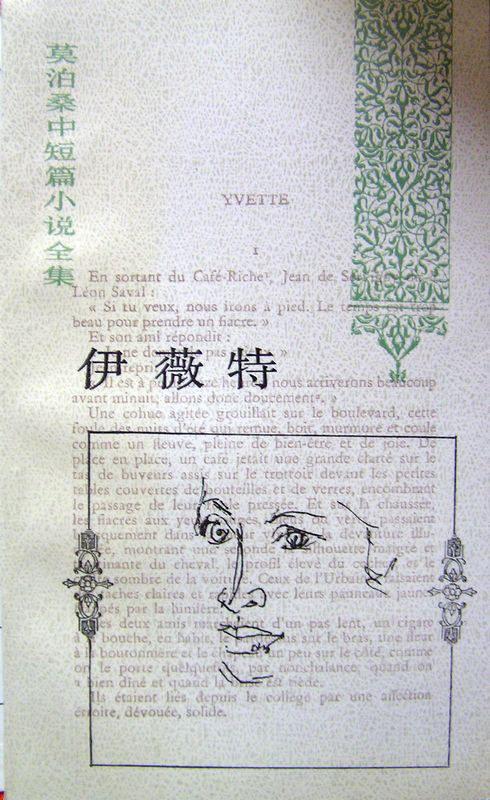 莫泊桑中短篇小说全集
YVETTE
I
En sortant du Café-Riche¹, Jean de
Léon Saval :
« Si tu veux, nous irons à pied. Le temps est trop
beau pour prendre un fiacre. »
Et son ami répondit :
伊薇特
nous arriverons beaucoup
avant minuit, allons donc doucement. »
Une cohue agitée grouillait sur le boulevard, cette
foule des nuits d'été qui remue, boit, murmure et coule
comme un fleuve, pleine de bien-être et de joie. De
place en place, un café jetait une grande clarté sur le
tas de buveurs assis sur le trottoir devant les petites
tables couvertes de bouteilles et de verres, encombrant
le passage de leur pressée. Et sur la chaussée,
les fiacres aux yeux passaient
dans devanture illu-
montrant une seconde silhouette maigre et
du cheval, profil élevé du et le
sombre de la voiture. Ceux de l'Urbaine faisaient
claires et avec leurs panneaux jaunes
par la lumière.
deux amis d'un pas lent, un cigare
bouche, en habit, le sur le bras, une fleur
à la boutonnière et le un peu sur le côté, comme
on le porte quelquefois, par nonchalance, quand on
a bien dîné et quand la est tiède.
Ils étaient liés depuis le collège par une affection
étroite, dévouée, solide.